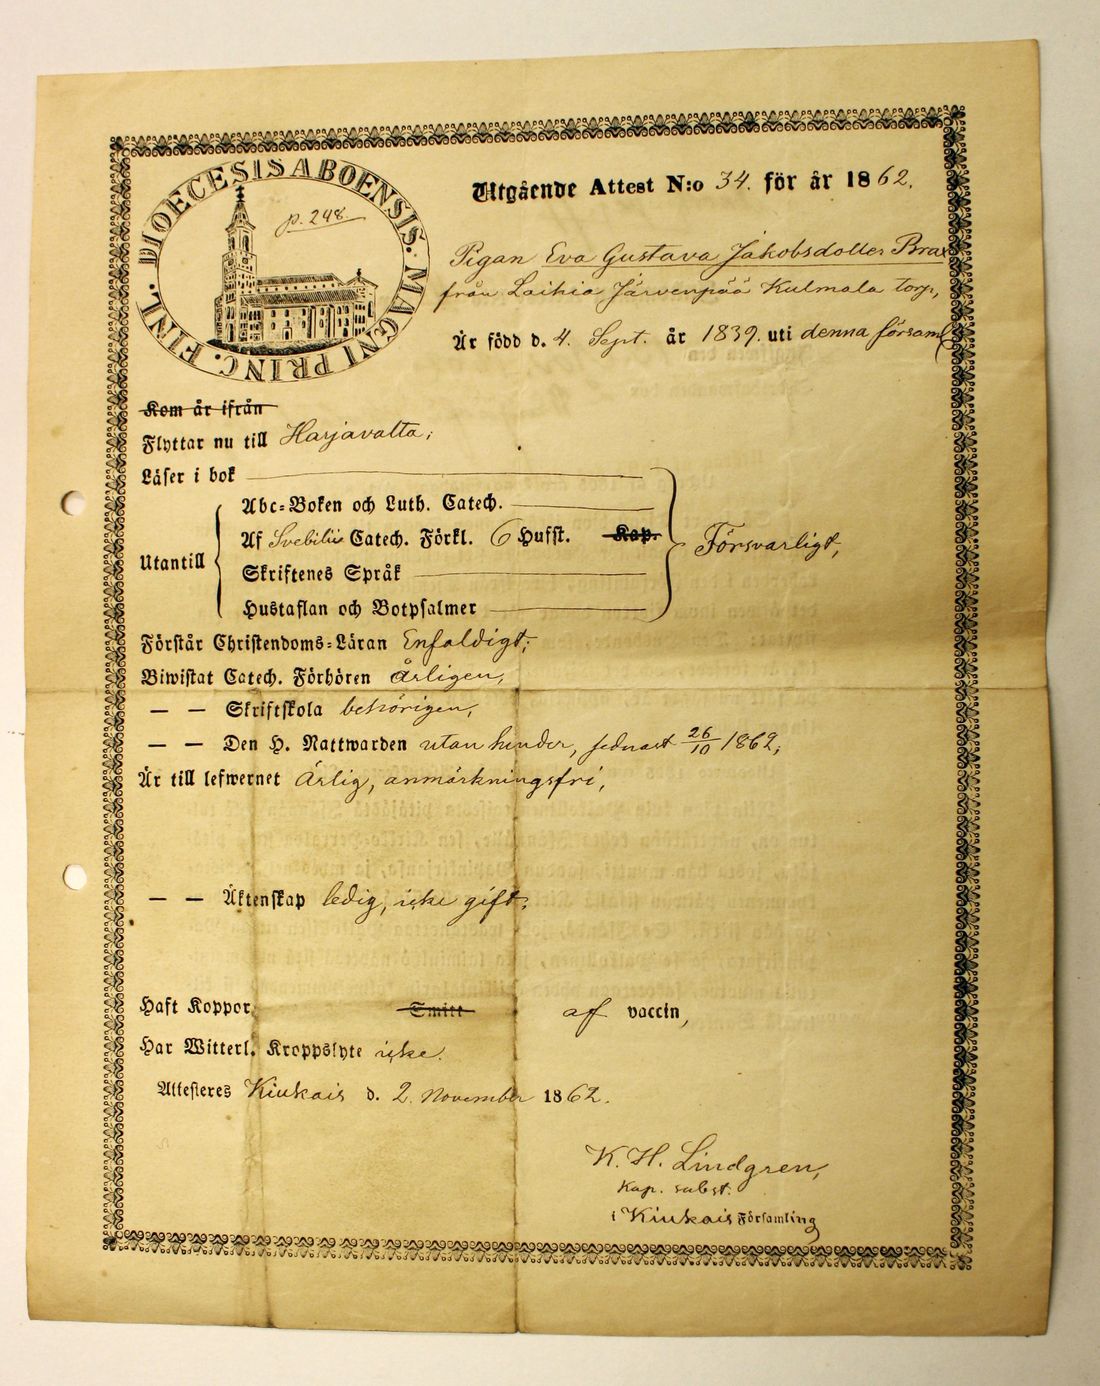 DIOECESIS ABOENSIS. MAGNI PRINC. FINL.
p. 248
Utgående Attest N:o 34. för år 1862.
Pigan Eva Gustava Jakobsdotter Brax
från Laihia Järvenpää Kulmala torp,
Är född d. 4. Sept. år 1839. uti denna församl
Kom år ifrån
Flyttar nu till Harjavalta;
Läser i bok
Abc-Boken och Luth. Catech.
Utantill Af Svebilii Catech. Förkl. 6 Hufst. Kap. Försvarligt,
Skriftenes Språk
Hustaflan och Botpsalmer
Förstår Christendoms-Läran Enfaldigt;
Biwistat Catech. Förhören Årligen,
— — Skriftskola behörigen,
— — Den H. Nattwarden utan hinder, sednast 26/10 1862;
Är till lefwernet Ärlig, anmärkningsfri,
— — Äktenskap ledig, icke gift;
Haft Koppor Smitt af vaccin,
Har Witterl. Kroppslyte icke.
Attesteres Kiukais d. 2. November 1862.
K. H. Lindgren,
Kap. subst.
i Kiukais Församling